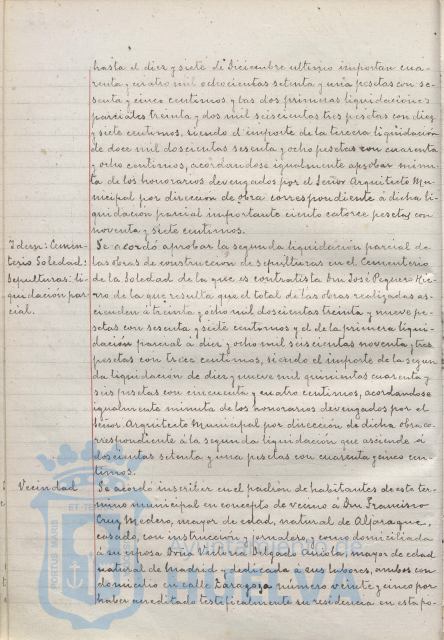 hasta el diez y siete de Diciembre ultimo importan cua-
renta y cuatro mil ochocientas setenta y una pesetas con se-
senta y cinco centimos y las dos primeras liquidaciones
parciales treinta y dos mil seiscientas tres pesetas con diez
y siete centimos, siendo el importe de la tercera liquidación
de doce mil doscientas sesenta y ocho pesetas con cuarenta
y ocho centimos, acordandose igualmente aprobar minu-
ta de los honorarios devengados por el Señor Arquitecto Mu-
nicipal por direccion de obra correspondiente á dicha li-
quidación parcial importante ciento catorce pesetas con
noventa y siete centimos.
Idem: Cemen-
terio Soledad:
Sepulturas: li-
quidación par-
cial.
Se acordó aprobar la segunda liquidación parcial de
las obras de construccion de sepulturas en el Cementerio
de la Soledad de la que es contratista Don José Peguero
rro de la que resulta que el total de las obras realizadas as-
cienden á treinta y ocho mil doscientas treinta y nueve pe-
setas con sesenta y siete centimos y el de la primera liqui-
dación parcial á diez y ocho mil seiscientas noventa y tres
pesetas con trece centimos, siendo el importe de la segun
da liquidación de diez y nueve mil quinientas cuarenta y
seis pesetas con cincuenta y cuatro centimos, acordandose
igualmente minuta de los honorarios devengados por el
Señor Arquitecto Municipal por dirección de dicha obra co-
rrespondiente á la segunda liquidación que asciende á
doscientas setenta y una pesetas con cuarenta y cinco cen-
timos.
Vecindad
Se acordó inscribir en el padron de habitantes de este ter-
mino municipal en concepto de vecino á Don Francisco
Cruz Medero, mayor de edad, natural de Aljaraque,
casado, con instruccion y jornalero, y como domiciliada
á su esposa Doña Victoria Delgado Rubio, mayor de edad
natural de Madrid y dedicada á sus labores, ambos con
domicilio en calle Zaragoza número veinte y cinco por
haber acreditado testificalmente su residencia en esta po-
PORTUS MARIS
ET TE
Ayuntamiento de
HUELVA